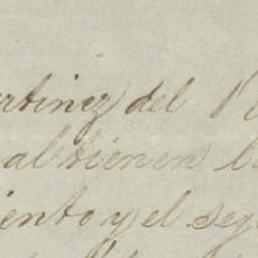 rtinez del
al tienen l
iento y el seg